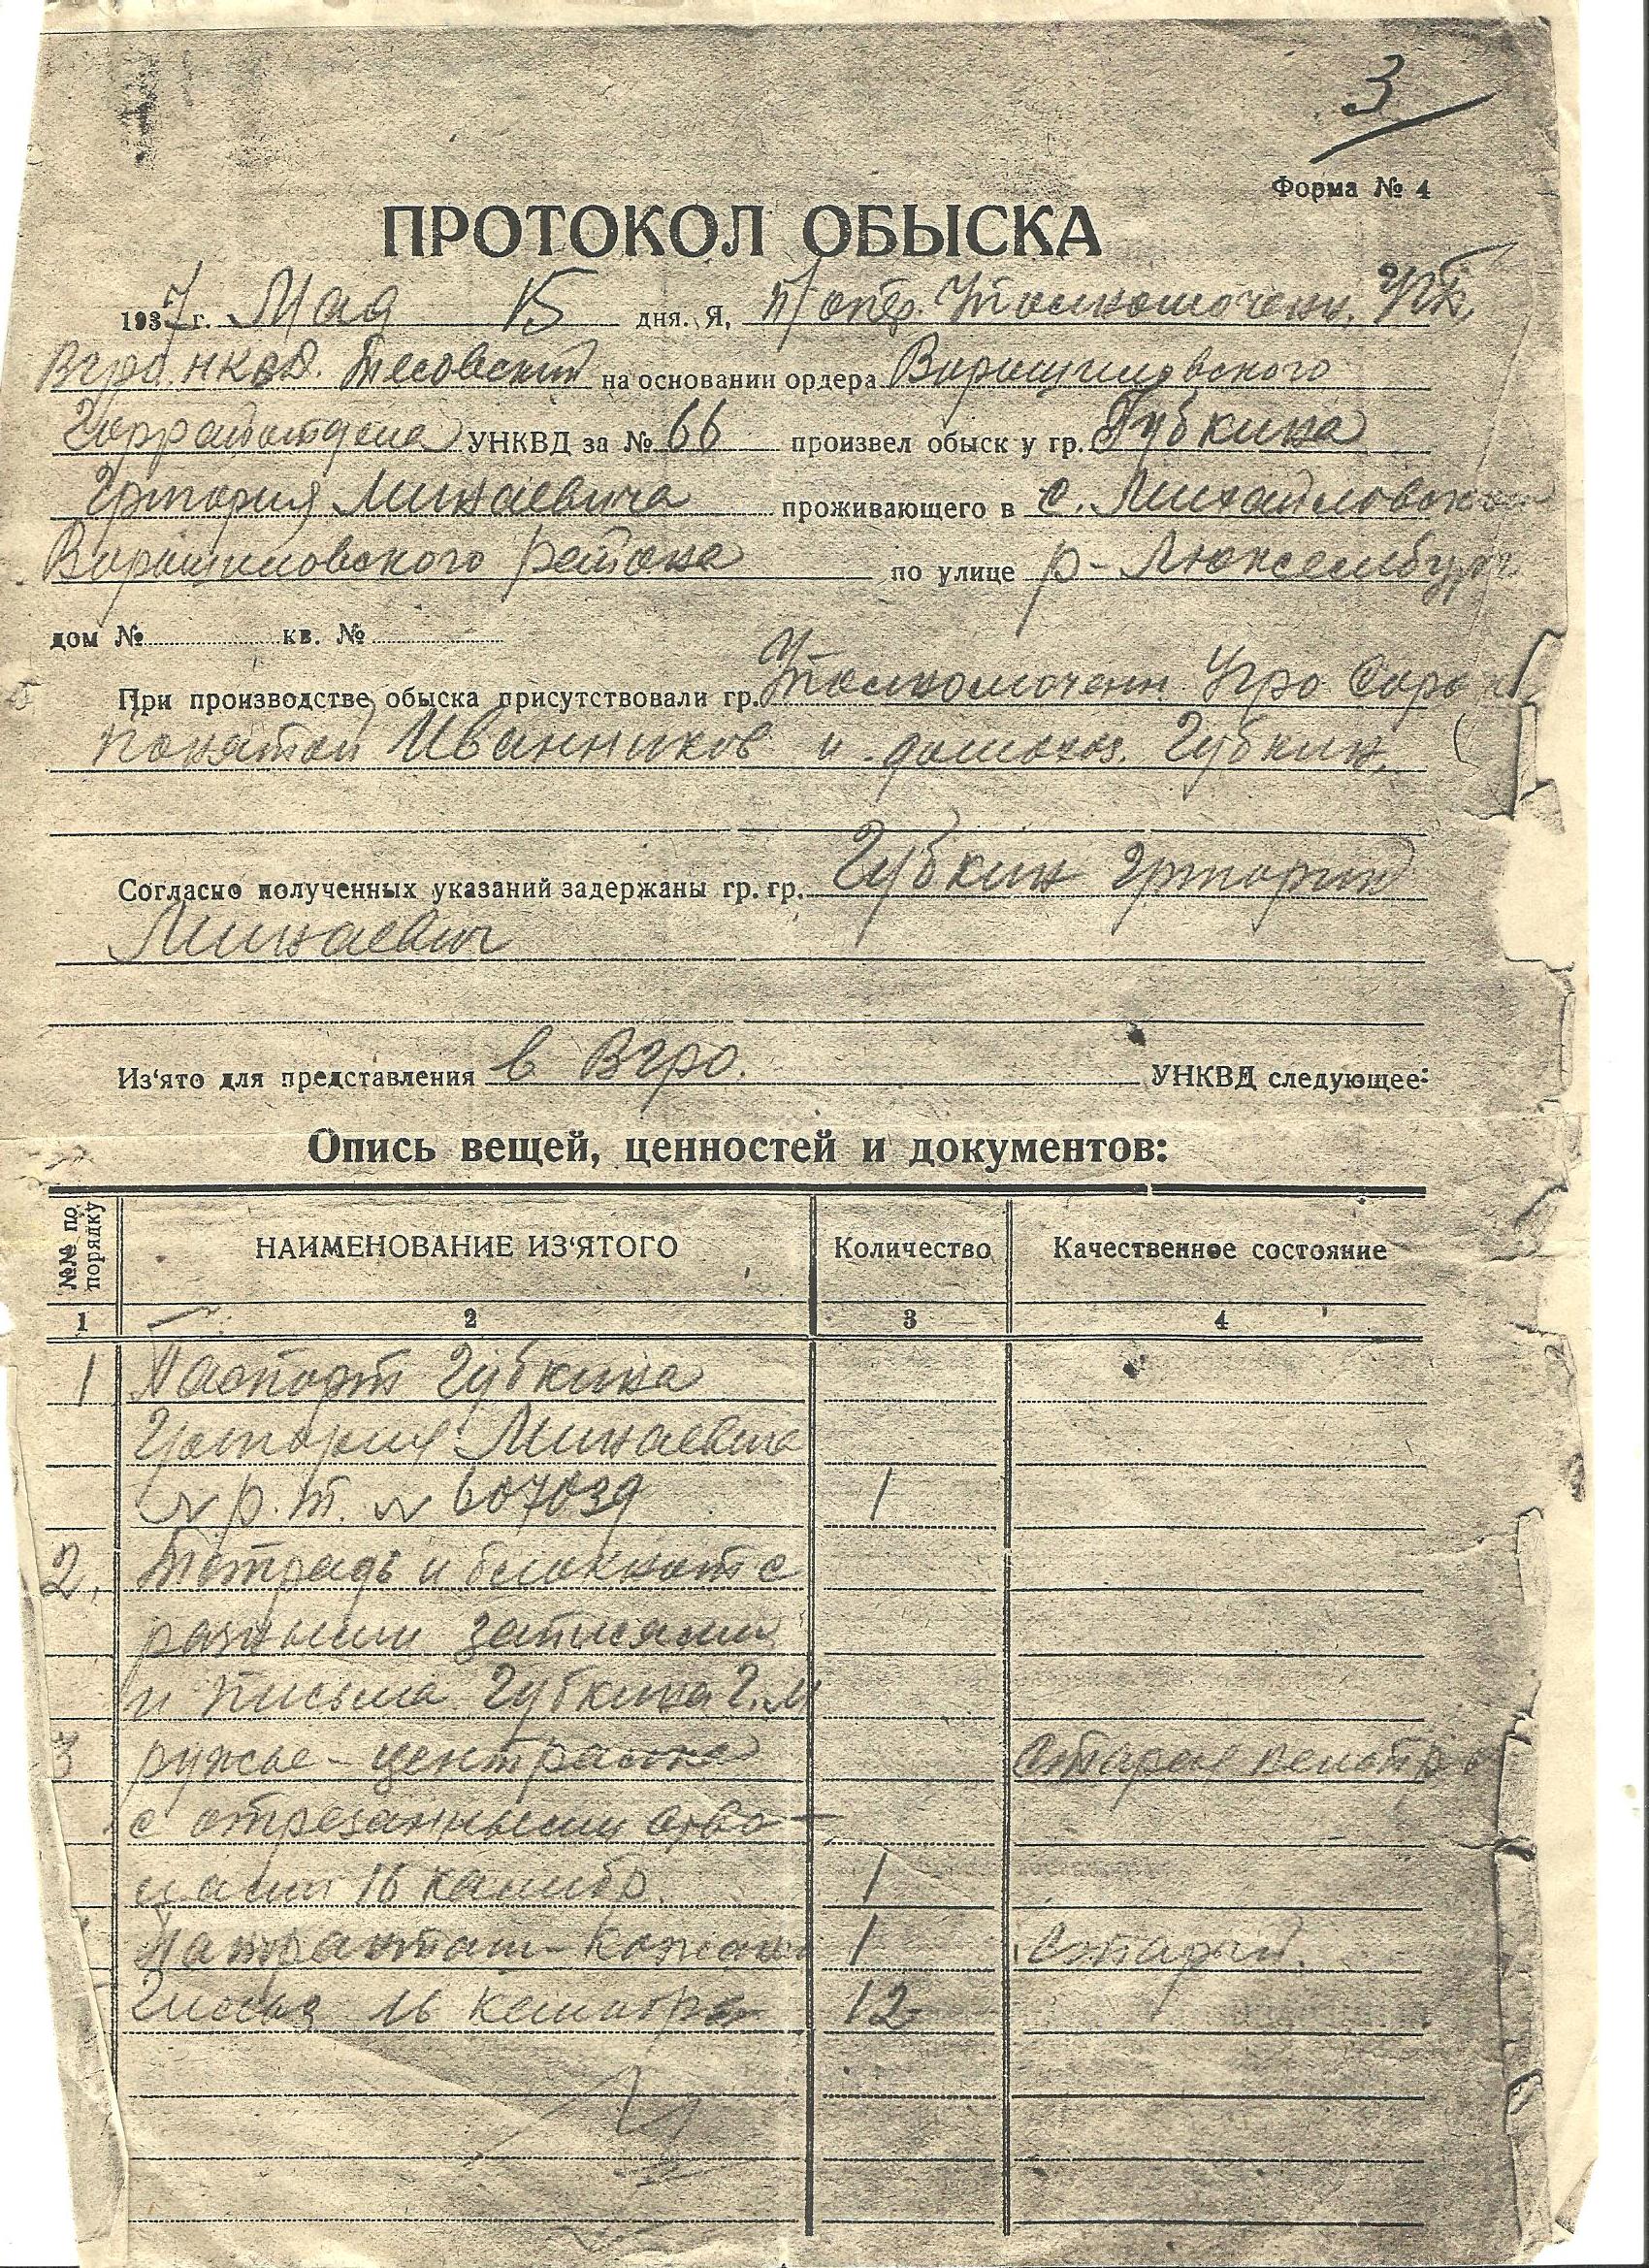 3
Форма № 4
ПРОТОКОЛ ОБЫСКА
1937 г. Мая 15 дня. Я, п/опер. Уполномоченн. УГБ
ВГРО НКВД. на основании ордера Ворошиловского
Горрайотдела УНКВД за № 66 произвел обыск у гр. Губкина
Григория Минаевича проживающего в с. Михайловском
Ворошиловского района по улице р-Люксембург
дом № кв. №
При производстве обыска присутствовали гр. Уполномоченн
понятой Иванников и домохоз. Губкин.
Согласно полученных указаний задержаны гр. гр. Губкин Григорий
Минаевич
Из'ято для представления в ВГРО. УНКВД следующее:
Опись вещей, ценностей и документов:
№№ по порядку НАИМЕНОВАНИЕ ИЗ'ЯТОГО Количество Качественное состояние
1 2 3 4
1 Паспорт Губкина
Григория Минаевича
р. т. № 607039 1
2. Тетрадь и блокнот с
разными записями
и письма Губкина Г. М
3 ружье - централка Старое
с отрезанными ство-
лами 16 калибр. 1
Патронташ - Кожаный 1 Старый.
Гильз 16 калибра 12